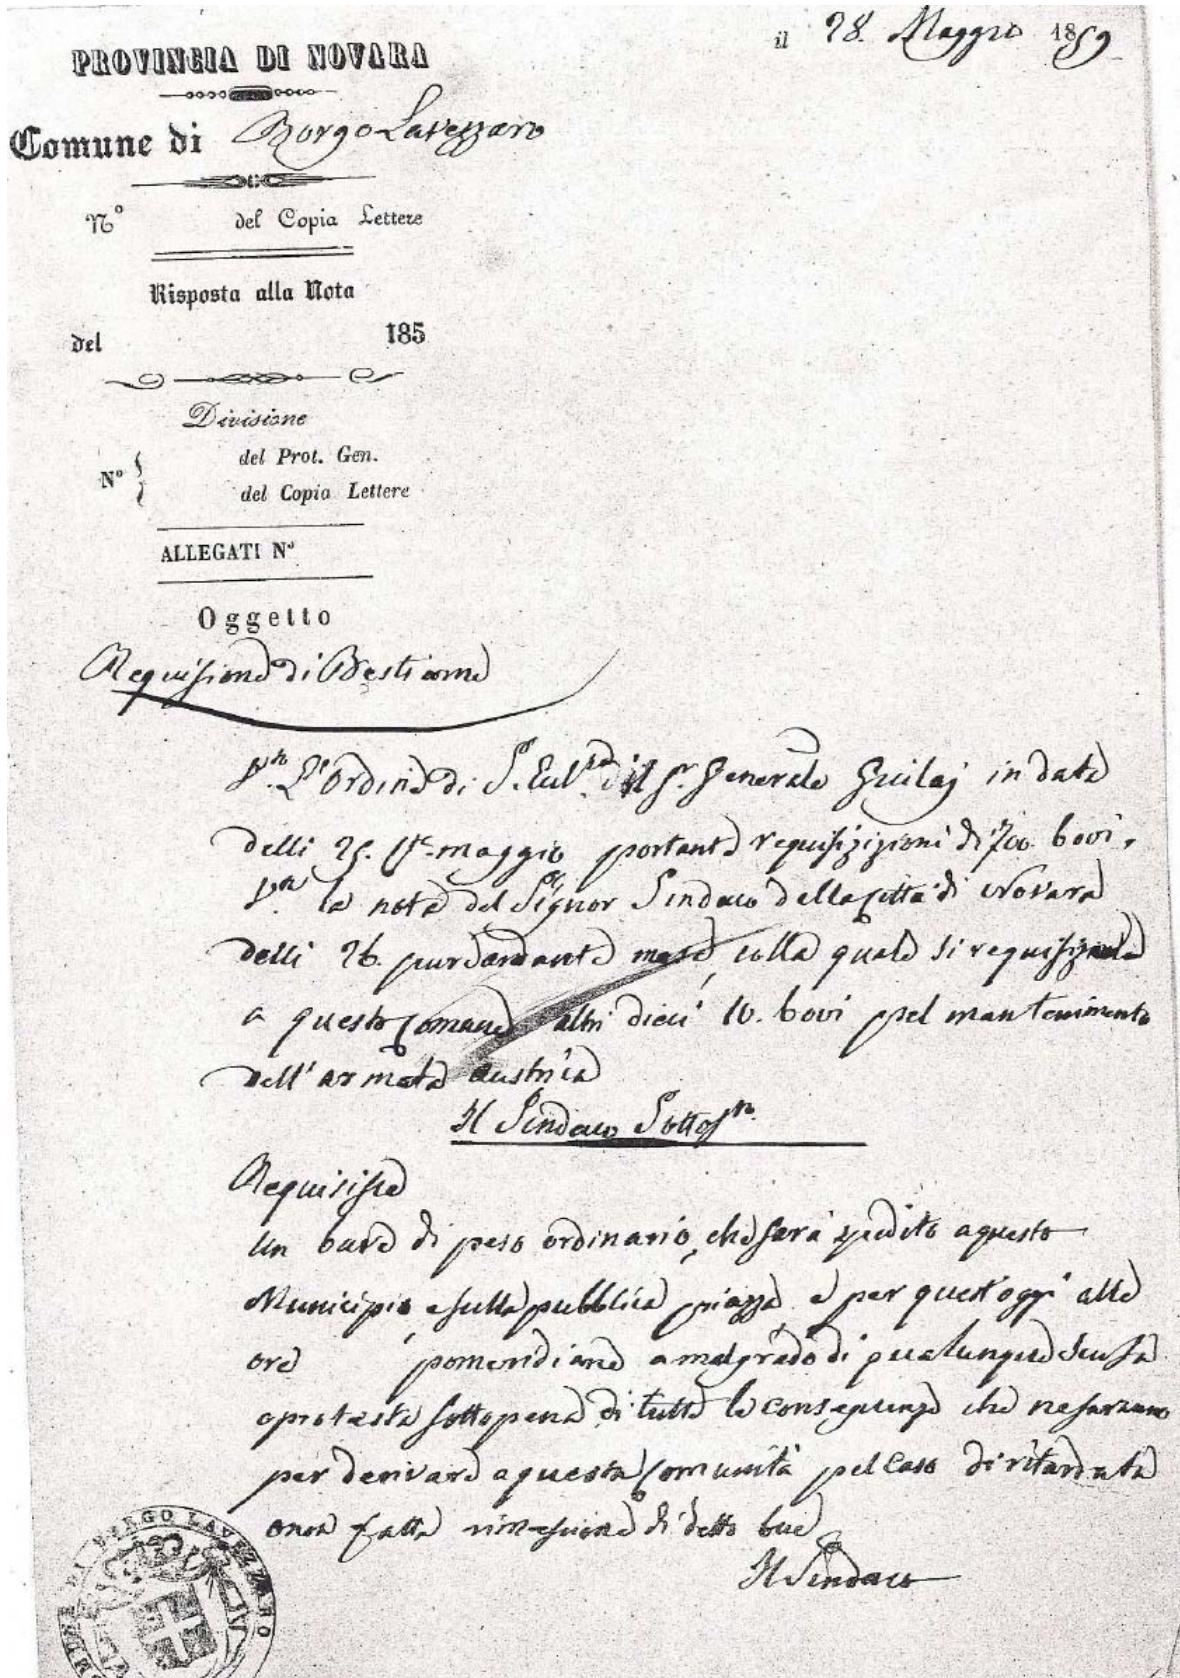 il 28. Maggio 1859
PROVINCIA DI NOVARA
Comune di Borgo Lavezzaro
N° del Copia Lettere
Risposta alla Nota
del 185
Divisione
N° del Prot. Gen.
del Copia Lettere
ALLEGATI N°
Oggetto
Requisizione di Bestiame
L'Ordine di S. il Sr. Generale Giulaj in data
delli 25. maggio portante requisizizioni di 700. bovi,
la nota del Signor Sindaco della Città di Novara
delli 26. pure andante mese, colla quale si
a questo Comune altri dieci 10. bovi pel mantenimento
dell'armata austria
Il Sindaco Sottosto.
Requisisce
Un bove di peso ordinario, che sarà spedito a questo
Municipio e sulla pubblica piazza, e per quest'oggi alle
ore pomeridiane a malgrado di qualunque scusa
o protesta sotto pena di tutte le conseguenze che ne saranno
per derivare a questa Comunità pel caso di ritardata
o non fatta rimessione di detto bue
Il Sindaco
COMUNE DI BORGO LAVEZZARO